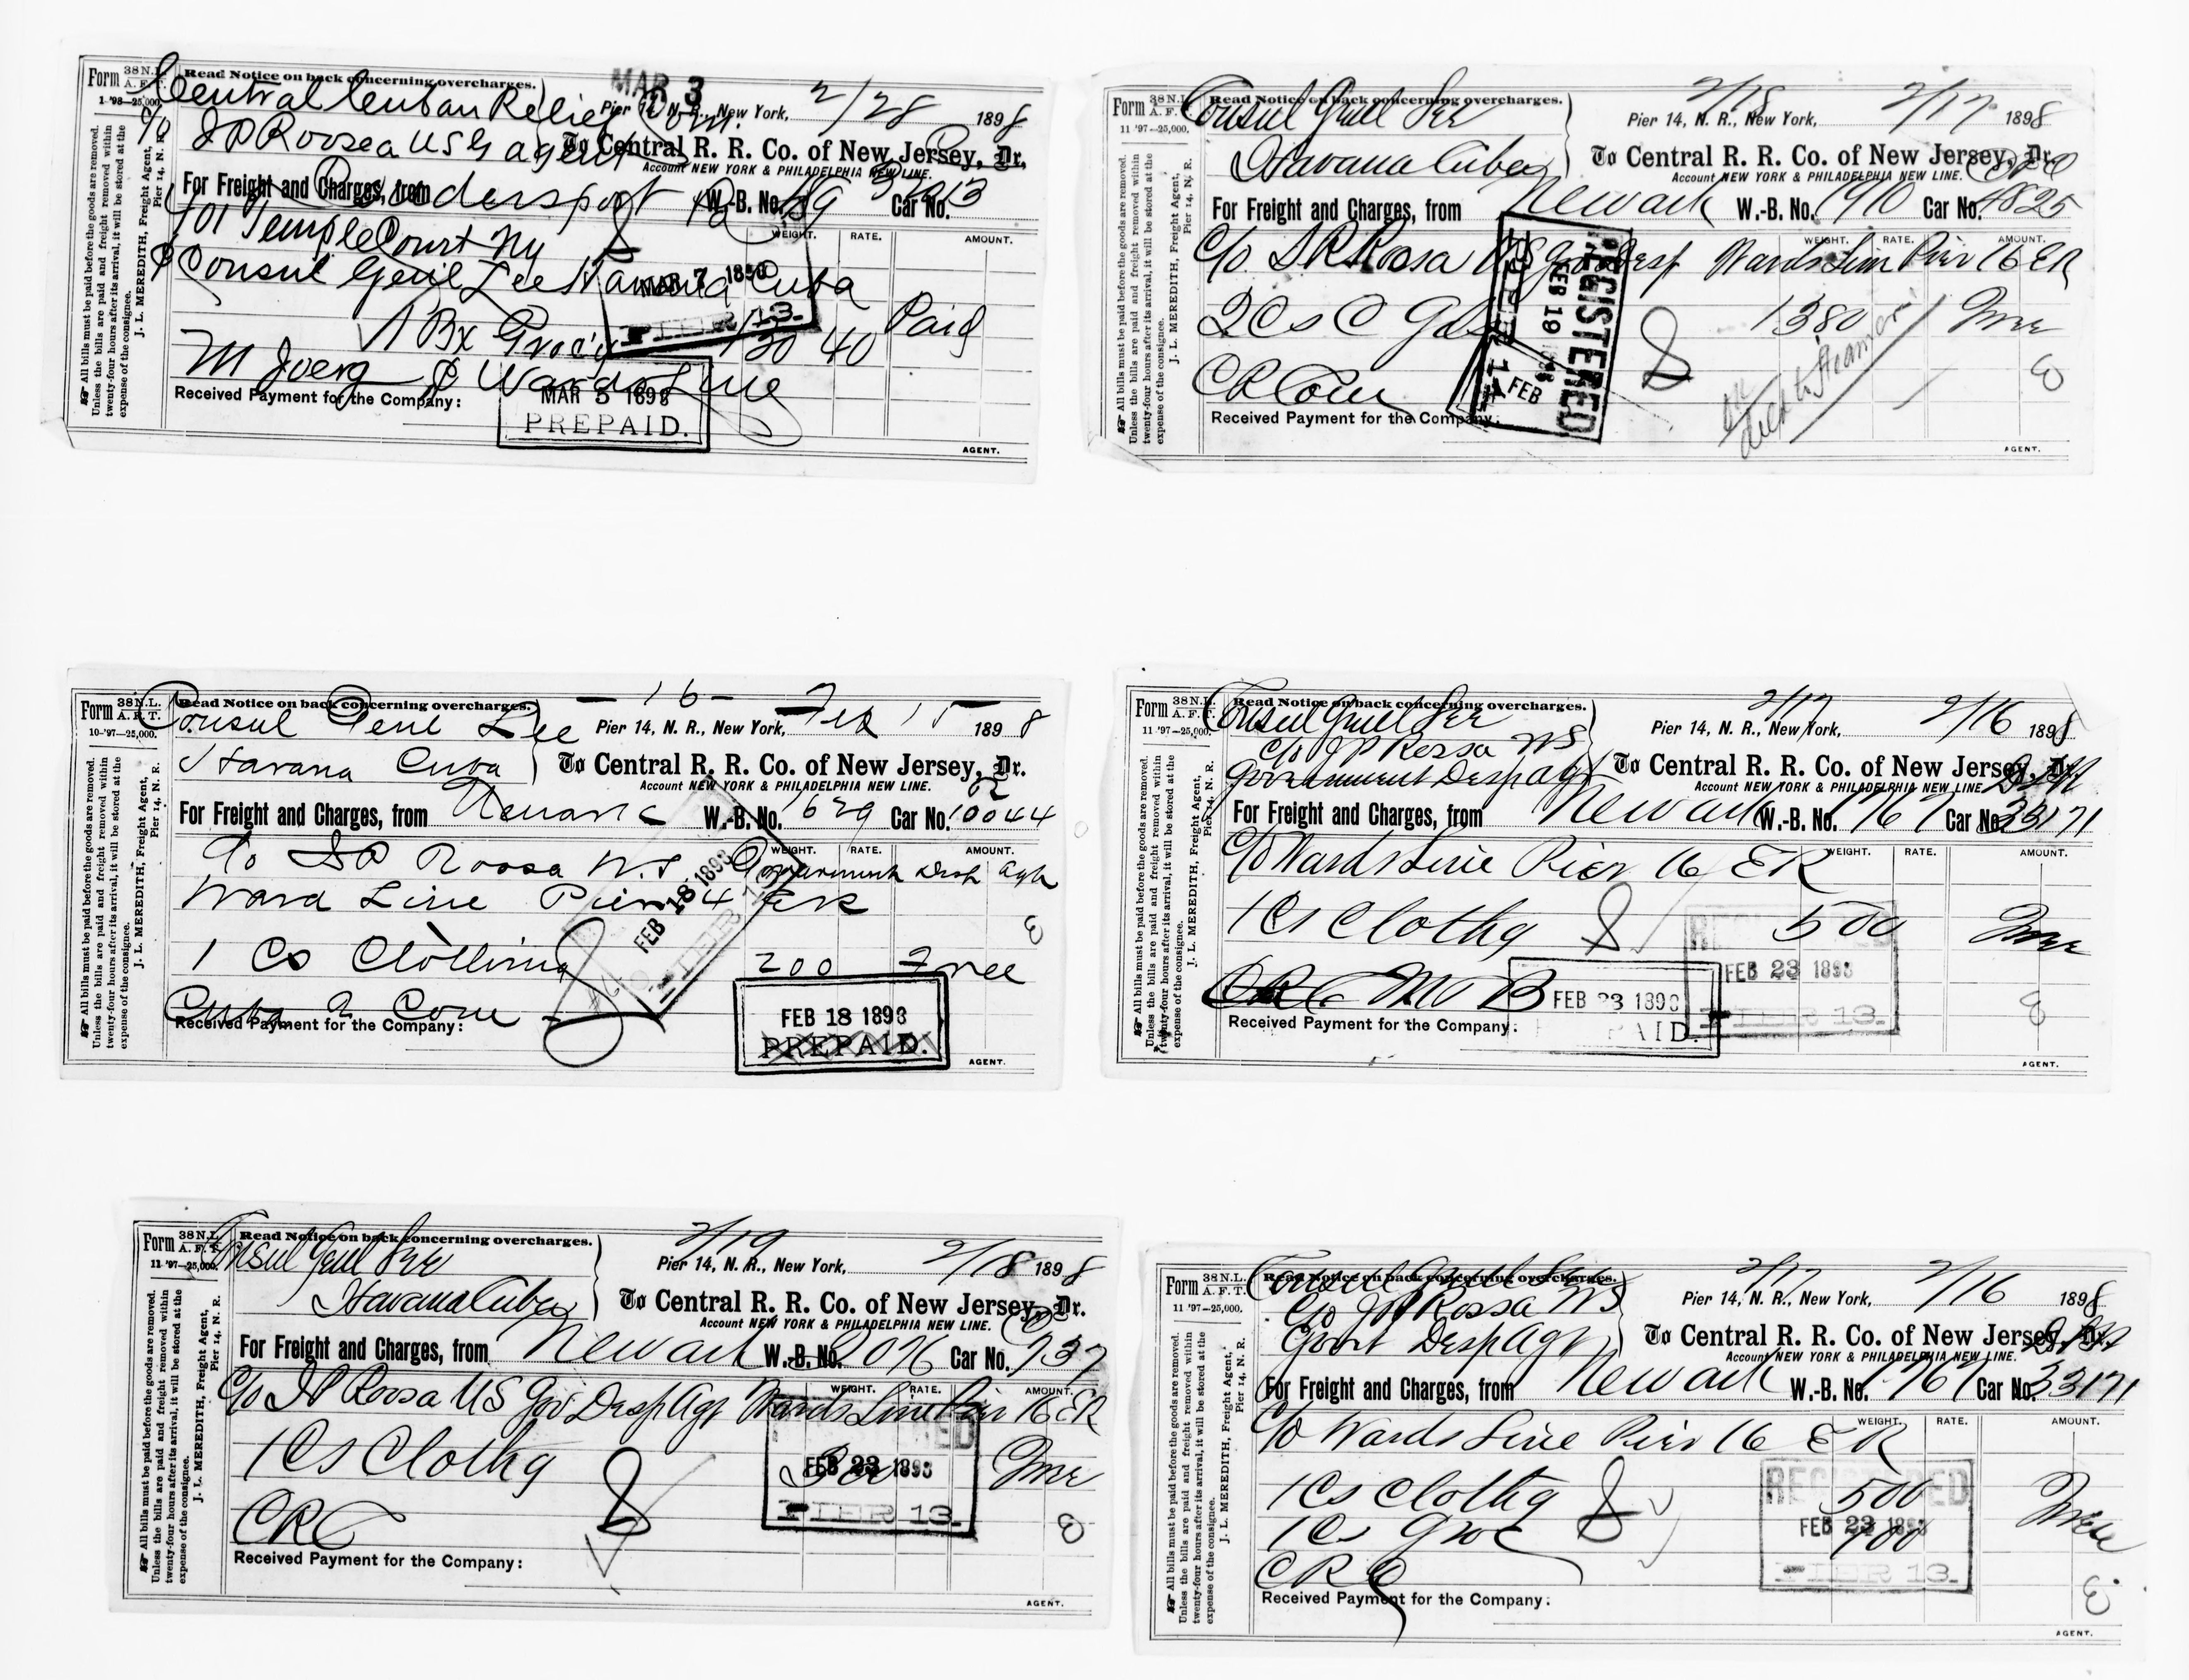 Form 38 N.L. A. F. T.
1-'98—25,000.
Read Notice on back concerning overcharges.
MAR 3
Central Cuban Relief Com.
Pier 14, N. R., New York, 2/28 1898
c/o J P Roosea US G agent
To Central R. R. Co. of New Jersey, Dr.
Account NEW YORK & PHILADELPHIA NEW LINE.
For Freight and Charges, from Coudersport W.-B. No. 19 Car No.
WEIGHT. RATE. AMOUNT.
101 Temple Court NY
Consul Genl Lee Havana Cuba
MAR 7 1898
PIER 13.
1 Bx Groc's 130 40 Paid
M Joerg Wards Line
Received Payment for the Company:
MAR 5 1898
PREPAID.
AGENT.
All bills must be paid before the goods are removed.
Unless the bills are paid and freight removed within
twenty-four hours after its arrival, it will be stored at the
expense of the consignee.
J. L. MEREDITH, Freight Agent,
Pier 14, N. R.
Form 38 N.L. A. F. T.
11 '97—25,000.
Read Notice on back concerning overcharges.
Consul Genl Lee
2/18
Pier 14, N. R., New York, 2/17 1898
Havana Cuba
To Central R. R. Co. of New Jersey, Dr.
Account NEW YORK & PHILADELPHIA NEW LINE.
For Freight and Charges, from Newark W.-B. No. 1910 Car No. 4825
WEIGHT. RATE. AMOUNT.
c/o J P Rossa US Gov Desp Wards Line Pier 16 ER
2 Cs C Gds 1380 Free
REGISTERED
FEB 19 1898
FEB
C R Com
OK
Received Payment for the Company:
AGENT.
All bills must be paid before the goods are removed.
Unless the bills are paid and freight removed within
twenty-four hours after its arrival, it will be stored at the
expense of the consignee.
J. L. MEREDITH, Freight Agent,
Pier 14, N. R.
Form 38 N.L. A. F. T.
10-'97—25,000.
Read Notice on back concerning overcharges.
Consul Genl Lee
-16-
Pier 14, N. R., New York, Feb 15 1898
Havana Cuba
To Central R. R. Co. of New Jersey, Dr.
Account NEW YORK & PHILADELPHIA NEW LINE.
For Freight and Charges, from Newark W.-B. No. 1629 Car No. 10044
WEIGHT. RATE. AMOUNT.
c/o J P Roosa U.S. Government Desh Agh
Ward Line Pier 4 ER
FEB 18 1898
PIER 13.
1 Cs Clothing 200 Free
Cuba R Com
Received Payment for the Company:
FEB 18 1898
PREPAID.
AGENT.
All bills must be paid before the goods are removed.
Unless the bills are paid and freight removed within
twenty-four hours after its arrival, it will be stored at the
expense of the consignee.
J. L. MEREDITH, Freight Agent,
Pier 14, N. R.
Form 38 N.L. A. F. T.
11 '97—25,000.
Read Notice on back concerning overcharges.
Consul Genl Lee
2/17
Pier 14, N. R., New York, 2/16 1898
c/o J P Rossa US
Government Desp Agt
To Central R. R. Co. of New Jersey, Dr.
Account NEW YORK & PHILADELPHIA NEW LINE.
For Freight and Charges, from Newark W.-B. No. 1767 Car No. 33171
WEIGHT. RATE. AMOUNT.
c/o Wards Line Pier 16 ER
1 Cs Clothg 500 Free
REGISTERED
FEB 23 1898
PIER 13.
C R C M B
FEB 23 1898
PAID.
Received Payment for the Company:
AGENT.
All bills must be paid before the goods are removed.
Unless the bills are paid and freight removed within
twenty-four hours after its arrival, it will be stored at the
expense of the consignee.
J. L. MEREDITH, Freight Agent,
Pier 14, N. R.
Form 38 N.L. A. F. T.
11-'97—25,000.
Read Notice on back concerning overcharges.
Consul Genl Lee
2/19
Pier 14, N. R., New York, 2/18 1898
Havana Cuba
To Central R. R. Co. of New Jersey, Dr.
Account NEW YORK & PHILADELPHIA NEW LINE.
For Freight and Charges, from Newark W.-B. No. 2076 Car No. 737
WEIGHT. RATE. AMOUNT.
c/o J P Roosa US Gov Desp Agt Wards Line Pier 16 ER
1 Cs Clothg Free
FEB 23 1898
PIER 13.
C R C
Received Payment for the Company:
AGENT.
All bills must be paid before the goods are removed.
Unless the bills are paid and freight removed within
twenty-four hours after its arrival, it will be stored at the
expense of the consignee.
J. L. MEREDITH, Freight Agent,
Pier 14, N. R.
Form 38 N.L. A. F. T.
11 '97—25,000.
Read Notice on back concerning overcharges.
Consul Genl Lee
2/17
Pier 14, N. R., New York, 2/16 1898
c/o J P Rossa US
Govnt Desp Agt
To Central R. R. Co. of New Jersey, Dr.
Account NEW YORK & PHILADELPHIA NEW LINE.
For Freight and Charges, from Newark W.-B. No. 1767 Car No. 33171
WEIGHT. RATE. AMOUNT.
c/o Wards Line Pier 16 ER
1 Cs Clothg 500 Free
1 Cs Groc 900
REGISTERED
FEB 23 1898
PIER 13.
C R C
Received Payment for the Company:
AGENT.
All bills must be paid before the goods are removed.
Unless the bills are paid and freight removed within
twenty-four hours after its arrival, it will be stored at the
expense of the consignee.
J. L. MEREDITH, Freight Agent,
Pier 14, N. R.